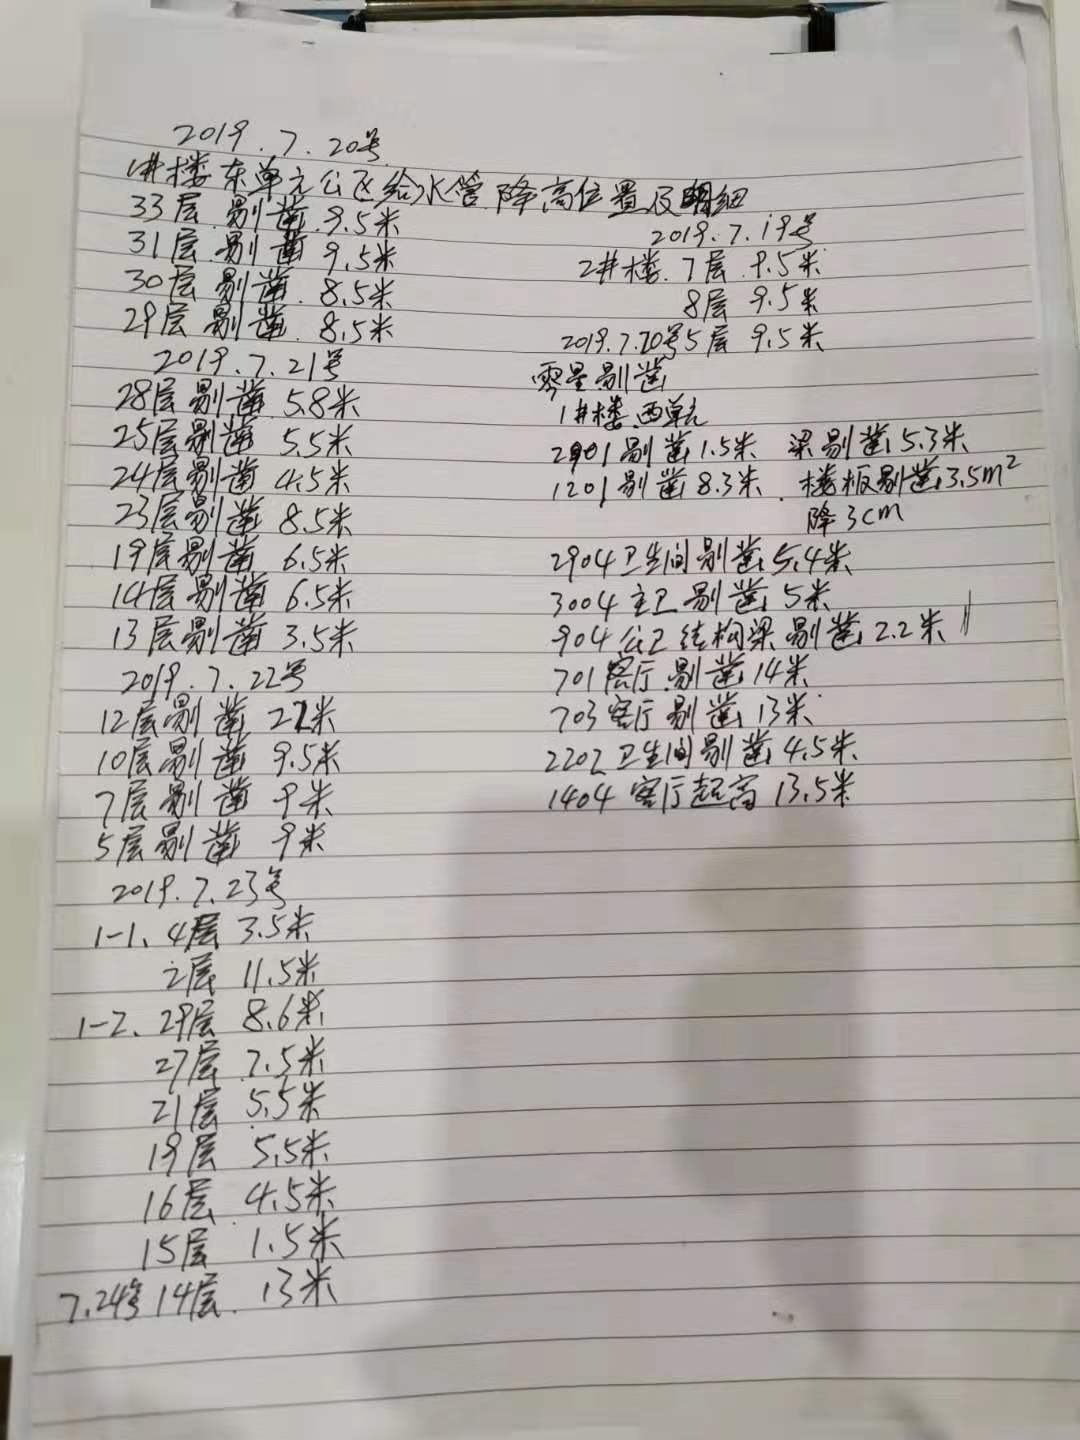 2019.7.20号
1#楼东单元公区给水管降高位置及明细
33层剔凿 9.5米
31层剔凿 9.5米
30层剔凿 8.5米
29层剔凿 8.5米
2019.7.21号
28层剔凿 5.8米
25层剔凿 5.5米
24层剔凿 4.5米
23层剔凿 8.5米
19层剔凿 6.5米
14层剔凿 6.5米
13层剔凿 3.5米
2019.7.22号
12层剔凿 22米
10层剔凿 9.5米
7层剔凿 9米
5层剔凿 9米
2019.7.23号
1-1、4层 3.5米
2层 11.5米
1-2、29层 8.6米
27层 7.5米
21层 5.5米
19层 5.5米
16层 4.5米
15层 1.5米
7.24号14层. 13米
2019.7.19号
2#楼.7层 9.5米
8层 9.5米
2019.7.20号5层 9.5米
零星剔凿
1#楼西单元
2901剔凿1.5米 梁剔凿5.3米
1201剔凿8.3米. 楼板剔凿3.5m²
降3cm
2904卫生间剔凿5.4米
3004主卫剔凿5米
904公卫结构梁剔凿2.2米
701客厅剔凿14米
703客厅剔凿13米
2202卫生间剔凿4.5米
1404客厅起高13.5米